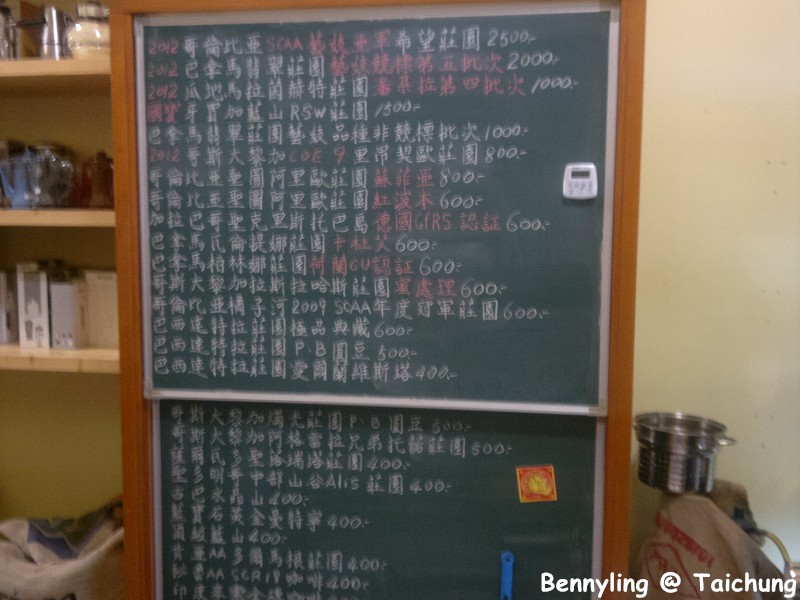 2012 哥倫比亞SCAA藝妓亞軍希望莊園 2500.-
2012 巴拿馬翡翠莊園藝妓競標第五批次 2000.-
2012 瓜地馬拉薗赫特莊園番朵拉第四批次 1000.-
國寶 牙買加藍山RSW莊園 1500.-
巴拿馬翡翠莊園藝妓品種非競標批次 1000.-
2012 哥斯大黎加COE 9 里昂契歐莊園 800.-
哥倫比亞聖圖阿里歐莊園蘇菲亞 800.-
哥倫比亞聖圖阿里歐莊園紅波本 600.-
加拉巴哥聖克里斯托巴島德國GfRS認証 600.-
巴拿馬瓦倫提娜莊園卡杜艾 600.-
巴拿馬柏林娜莊園荷蘭CU認証 600.-
哥斯大黎加拉斯拉哈斯莊園蜜處理 600.-
哥倫比亞橘子河2009 SCAA年度冠軍莊園 600.-
巴西達特拉莊園極品典藏 600.-
巴西達特拉莊園P.B圓豆 500.-
巴西達特拉莊園愛爾蘭維斯塔 400.-
哥斯大黎加燭光莊園P.B圓豆 500.-
哥斯大黎加阿格雷拉兄弟托諾莊園 500.-
薩爾瓦多聖塔瑞塔莊園 400.-
聖多明哥中部山谷Alis莊園 400.-
古巴水晶山 400.-
藍寶石黃金曼特寧 400.-
頂級藍山 400.-
肯亞AA多爾馬根莊園 400.-
秘魯AA SCR18咖啡 400.-
Bennyling @ Taichung